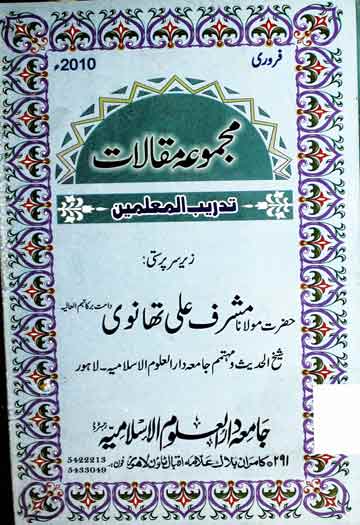 فروری
2010ء
مجموعہ مقالات
تدریب المعلمین
زیر سرپرستی:
حضرت مولانا مشرف علی تھانوی دامت برکاتہم العالیہ
شیخ الحدیث و مہتمم جامعہ دارالعلوم الاسلامیہ۔ لاہور
جامعہ دارالعلوم الاسلامیہ رجسٹرڈ
۲۹۱ کامران بلاک علامہ اقبال ٹاؤن لاہور فون:
5422213
5433049